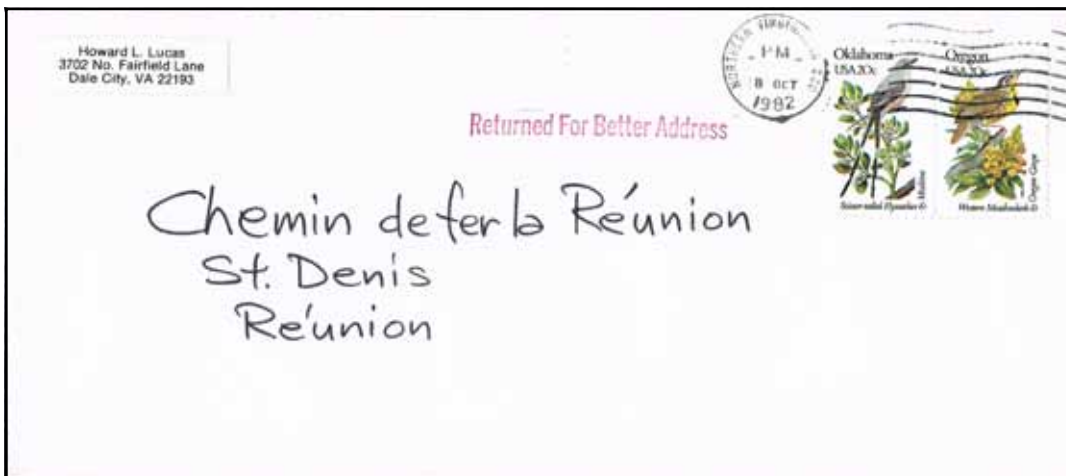 Howard L. Lucas
3702 No. Fairfield Lane
Dale City, VA 22193
NORTHERN
PM
8 OCT
1982
Oklahoma
USA20c
Oregon
USA20c
Scissor-tailed Flycatcher &
Mistletoe
Western Meadowlark &
Oregon Grape
Returned For Better Address
Chemin de fer la Réunion
St. Denis
Réunion